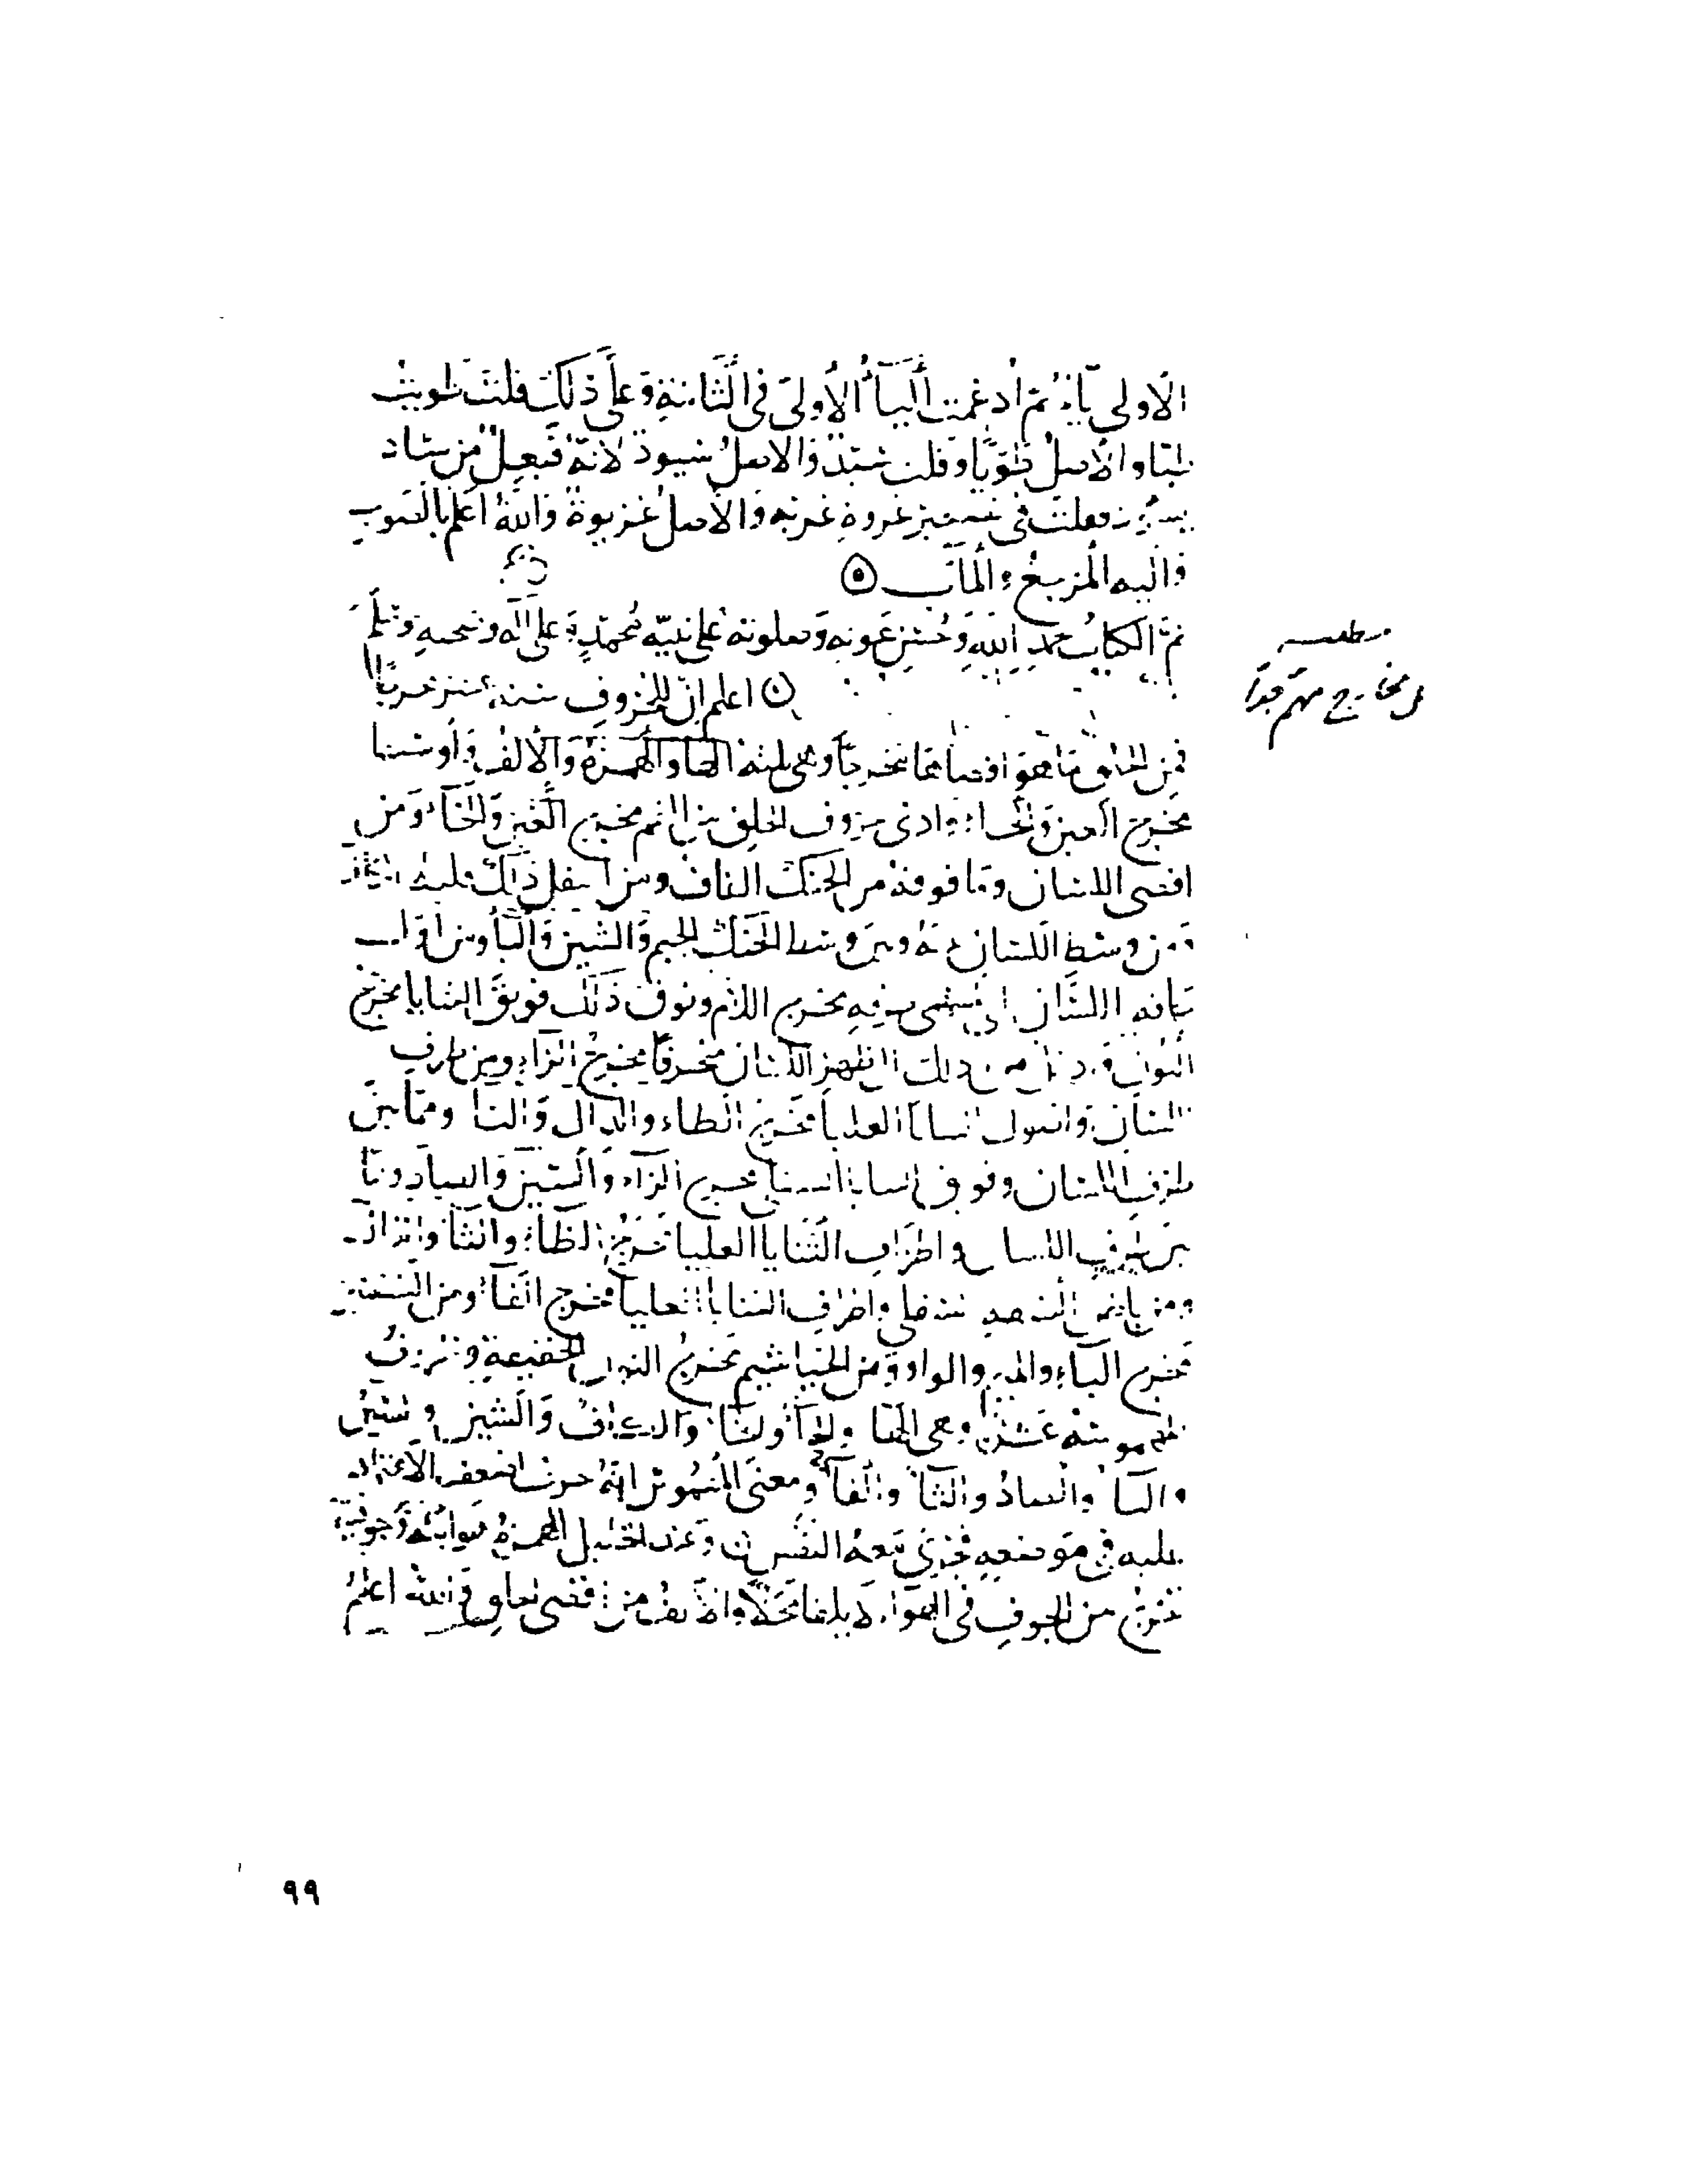 الأولى ياءً ثم ادغمت الياءُ الأولى في الثانية وعلى ذلك قلت طويت
طيّا والأصل طويًا وقلت سيّد والاصل سيود لانّه فيعل من ساد
يسود وقلت في غزوة والأصل غزيوة والله أعلم بالصواب
واليه المرجع والمآب
تمّ الكتاب بحمد الله وحسن عونه وصلوته على نبيّه محمّد وعلى آله وصحبه وسلّم
مطلب
في مخارج مهم جدا
اعلم انّ للحروف ستة عشر مخرجًا
فمن الحلق فأقصاها مخرجًا وهي ثلثة الهاء والهمزة والألف وأوسطها
مخرج العين والحاء وادنى حروف الحلق من الفم مخرج الغين والخاء ومن
اقصى اللسان وما فوقه من الحنك القاف ومن أسفل ذلك قليلا الكاف
ومن وسط اللسان بينه وبين وسط الحنك الجيم والشين والياء ومن أول
حافة اللسان الى منتهى طرفه مخرج اللام وفوق ذلك فويق الثنايا مخرج
النون وأدخل من ذلك الى ظهر اللسان منحرفًا مخرج الراء ومن طرف
اللسان وأصول الثنايا العليا مخرج الطاء والدال والتاء وممّا بين
طرف اللسان وفويق الثنايا السفلى مخرج الزاء والسين والصاد وممّا
بين طرف اللسان واطراف الثنايا العليا مخرج الظاء والثاء والذال
ومن باطن الشفة السفلى واطراف الثنايا العليا مخرج الفاء ومن الشفتين
مخرج الباء والميم والواو ومن الخياشيم مخرج النون الخفيفة والحروف
المهموسة عشرة وهي الهاء والحاء والخاء والكاف والشين والسين
والتاء والصاد والثاء والفاء ومعنى المهموس انّه حرف اضعف الاعتماد
عليه في موضعه فجرى معه النفس وعند الخليل الهمزة هوائيّة وجوفيّة
تخرج من الجوف في الهواء من اقصى الحلق والله اعلم
٩٩